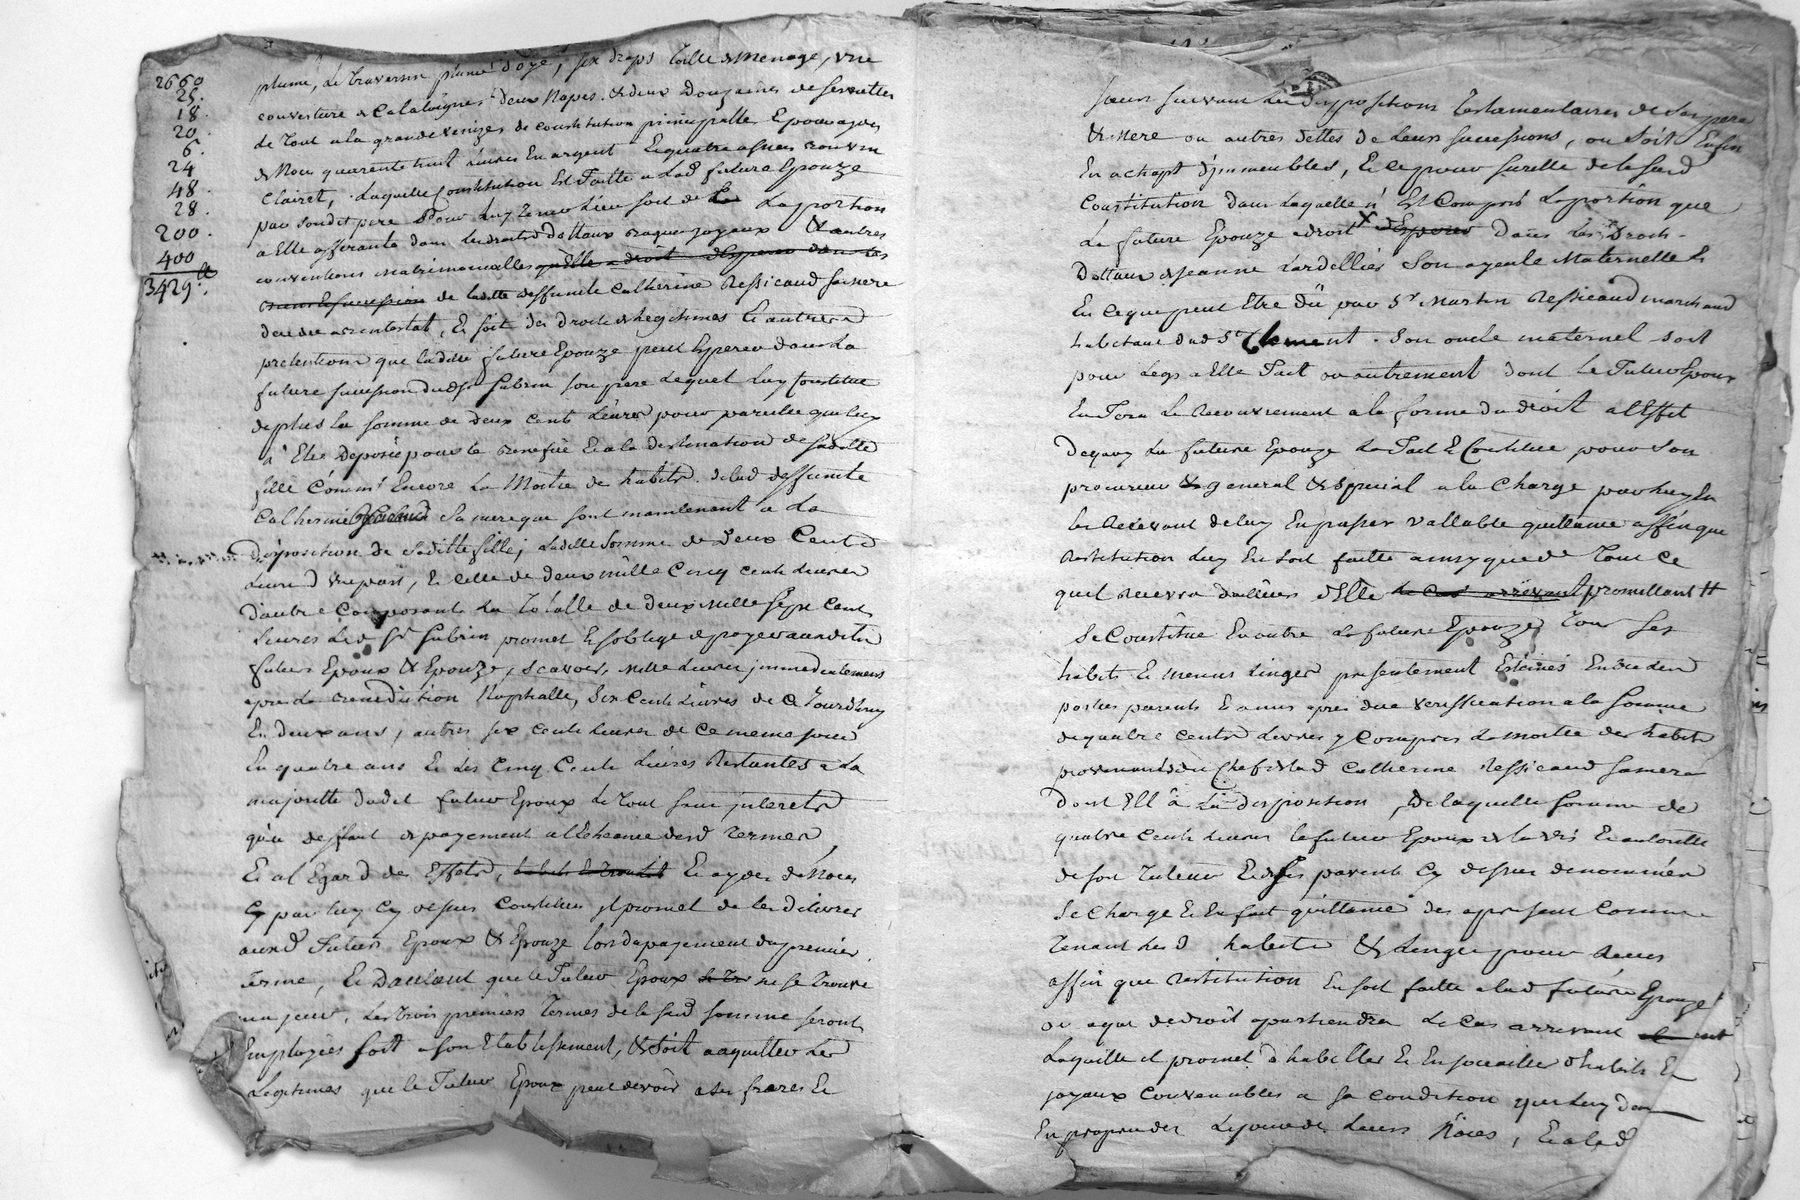 2660
25.
18.
20.
6.
24
48.
28.
200.
400
3429
plume, Le traversin plume d'oye, six draps toille de menage, une
couverture de Catalougnes deux Napes. & deux Douzaines de serviettes
de tout a la grande
de Nous quarente huit livres En argent Et quatre
Clairet, Laquelle Constitution Est faitte a Lad future Epouze
par sondit pere Pour luy tenir Lieu soit de La Laportion
a Elle afferante dans Les droits Dottaux bagues joyaux & autres
conventions Matrimonialles quelle a droit d'Esperer dans
de laditte deffunte Catherine Ressicaud sa mere
Et soit des Droits de Legitimes Et autres
pretentions que laditte future Epouze peut Esperer dans La
future sucession dudit Sr Subrin son pere Lequel Luy constitue
de plus La somme de deux cents Livres pour
a Elle
fille Comme Encore La Moitie des habits de lad deffunte
Catherine Ressicaud sa mere que sont maintenant a La
Disposition de saditte fille; Laditte somme de Deux Cents
Livres d'une part, Et celle de deux mille Cinq cents Livres
d'autre Composants La Totalle de deux mille sept cents
Livres Led Sr Subrin promet Et soblige de payer auxdits
futurs Epoux & Epouze, scavoir, mille Livres immediatement
apres La Benediction Nuptialle, Six Cents Livres de Ce Jourdhuy
En deux ans, autres six cents Livres de Ce meme jour
En quatre ans Et Les Cinq Cents Livres Restantes a La
majoritte dudit futur Epoux Le tout sans interets
qua deffaut de payement a lEcheance desd termes,
Et al Egard des Effets, Et ayder de Noces
Cy par luy Cy dessus Constitues il promet de les delivrer
auxd Futurs Epoux & Epouze lors du payement du premier
terme, Et Dautant que le Futur Epoux ne se trouve
majeur, Les trois premiers Termes de la sud somme seront
Employés soit a son Etablissement, & soit a aquitter Les
Legitimes que le Futur Epoux peut devoir a ses freres Et
sœurs suivant Les dispositions Testamentaires de Ses pere
& Mere ou autres dettes de Leurs sucessions, ou soit Enfin
En achapt d'immeubles, Et de la sud
Constitution dans Laquelle n'Est Compris La portion que
La future Epouze a droit x d'Esperer Dans Les Droits
Dottaux de Jeanne Lardellier Son ayeule Maternelle Et
En ce que peut Etre Dû par Sr Martin Ressicaud marchand
habitant dud St Clement. Son oncle maternel soit
pour Legs a Elle Fait ou autrement dont Le Futur Epoux
En Fera Le Recouvrement a la forme du droit a lEffet
Dequoy La future Epouze Le Fait Et Constitue pour Son
procureur general & special a la Charge par luy En
Les Recevant de luy En passer vallable quittance affin que
Restitution Luy En soit faitte ainsy que de Tout Ce
quil Recevra dailleurs d'Elle le cas arrivant promettant #
Se Constitue En outre La future Epouze Tous Ses
habits Et menus Linges presentement Estimés Entre Les
parties parents Et amis apres due verification a la Somme
de quatre Cents Livres y Compris La moitie des habits
provenants du Chef de lad Catherine Ressicaud sa mere
dont Ell â La disposition, de laquelle somme de
quatre cents Livres le futur Epoux de lavis Et autoritte
de son Tuteur Et de ses parents Cy dessus denommés
Se Charge Et En fait quittance des apresent Comme
Tenant Lesd habits & Linges pour Reçus
affin que Restitution En soit faitte a lad future Epouze
ou a qui de droit apartiendra Le Cas arrivant
Laquelle il promet d'habiller Et Enjoueiller d'habits Et
joyaux Convenables a sa condition que luy
En propre des Lejour de Leurs Nôces, Et alad